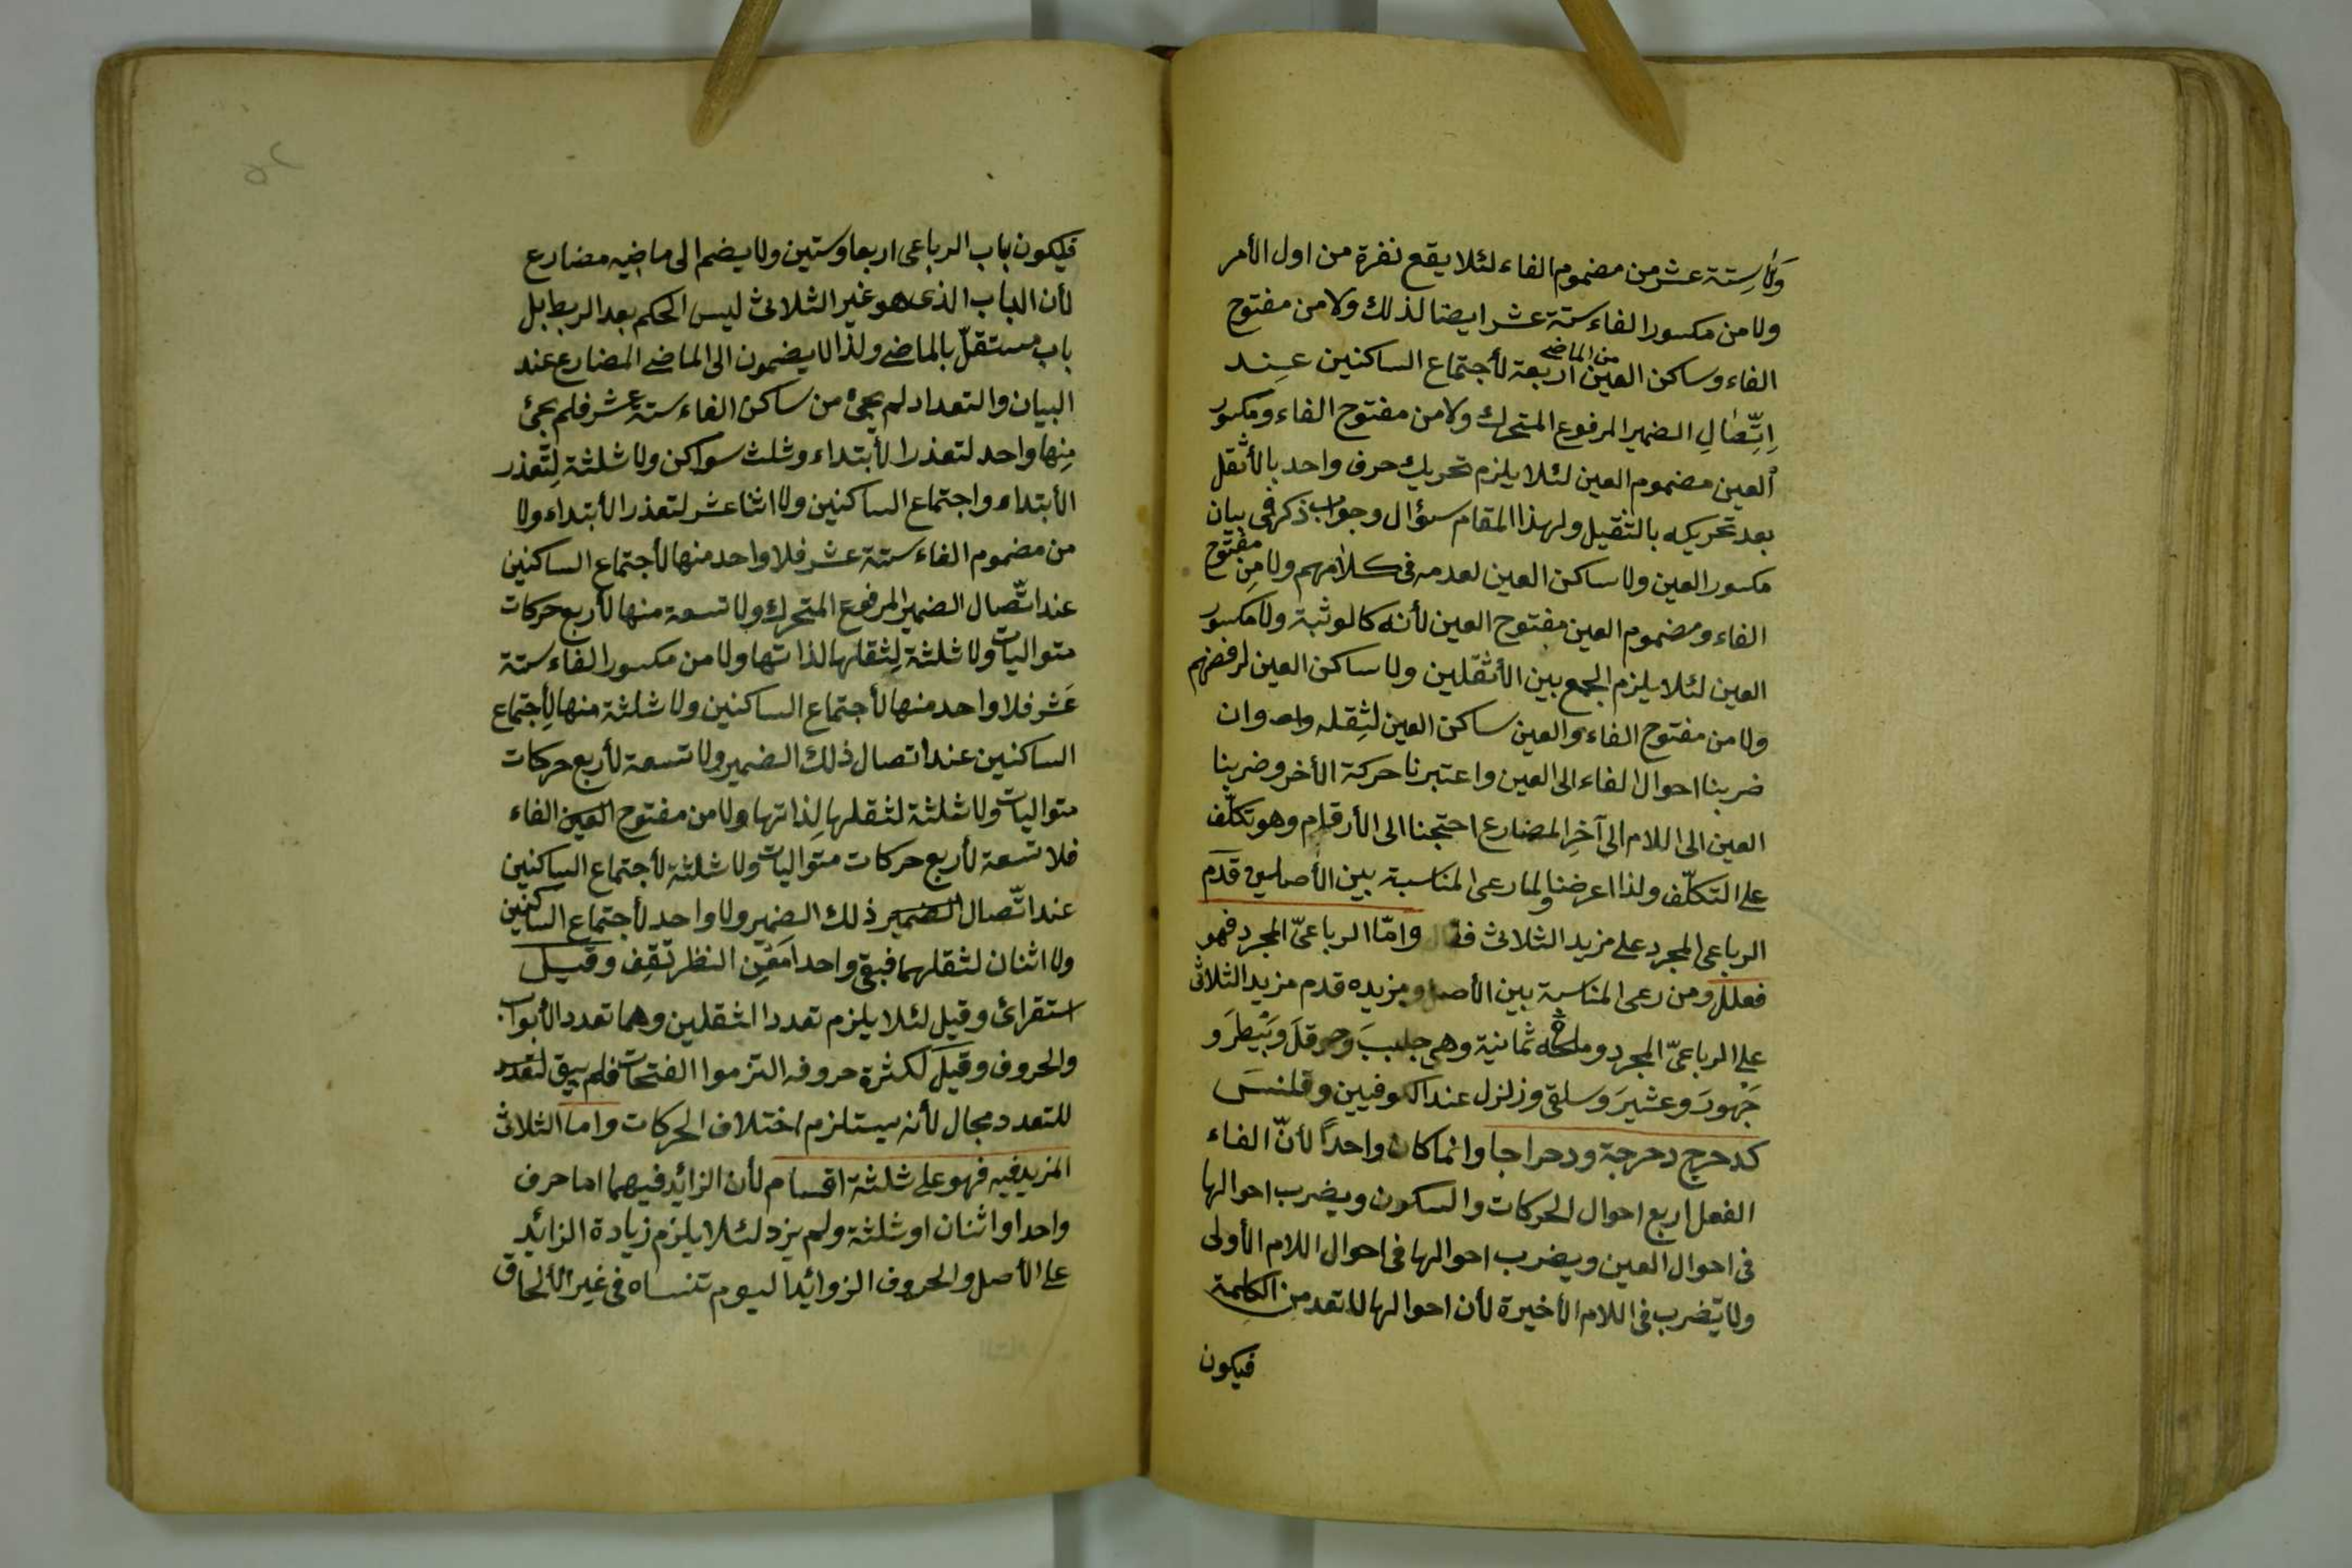 ولا ستة عشر من مضموم الفاء لئلا يقع نفرة من اول الأمر
ولا من مكسور الفاء ستة عشر ايضا لذلك ولا من مفتوح
الفاء وساكن العين من الماضى اربعة لأجتماع الساكنين عند
اِتِّصَالِ الضمير المرفوع المتحرك ولا من مفتوح الفاء ومكسور
العين مضموم العين لئلا يلزم تحريك حرف واحد بالأثقل
بعد تحريكه بالثقيل ولهذا المقام سؤال وجواب ذكر فى بيان
مكسور العين ولا ساكن العين لعدمه فى كلامهم ولا مِن مفتوح
الفاء ومضموم العين مفتوح العين لأنه كالوثبة ولا مكسور
العين لئلا يلزم الجمع بين الأثقلين ولا ساكن العين لرفضهم
ولا من مفتوح الفاء والعين ساكن العين لثِقله وان
ضربنا احوال الفاء الى العين واعتبرنا حركة الأخر وضربنا
العين الى اللام الى آخِر المضارع احتجنا الى الأرقام وهو تكلّف
على التكلّف ولذا اعرضنا ولما رعى المناسبة بين الأصلين قدّم
الرباعى المجرد على مزيد الثلاثى فقال وامّا الرباعىّ المجرد فهو
فعلل ومن رعى المناسبة بين الأصل ومزيده قدم مزيد الثلاثى
على الرباعىّ المجرد وملحقه ثمانية وهى جلببَ وحوقلَ وبَيْطرَ و
جَهْورَ وعثيرَ وسلقى وزلزل عند الكوفيين وقلنسَ
كدحرج دحرجة ودحراجا وانما كان واحدًا لأنّ الفاء
الفعل اربع احوال الحركات والسكون ويضرب احوالها
فى احوال العين ويضرب احوالها فى احوال اللام الأولى
ولا تضرب فى اللام الأخيرة لأن احوالها لا تعد من الكلمة
فيكون
فيكون باب الرباعى اربعا وستين ولا يضم الى ماضيه مضارع
لأن الباب الذى هو غير الثلاثى ليس الحكم بعد الربط بل
باب مستقلّ بالماضى ولذا لا يضمون الى الماضى المضارع عند
البيان والتعداد لم يجئ من ساكن الفاء ستة عشر فلم يجئ
مِنها واحد لتعذر الأبتداء وثلث سواكن ولا ثلثة لِتعذر
الأبتداء واجتماع الساكنين ولا اثنا عشر لتعذر الأبتداء ولا
من مضموم الفاء ستة عشر فلا واحد منها لأجتماع الساكنين
عند اتّصال الضمير المرفوع المتحرك ولا تسعة منها لأربع حركات
متواليات ولا ثلثة لِثقلها لذاتها ولا من مكسور الفاء ستة
عَشر فلا واحد منها لأجتماع الساكنين ولا ثلثة منها لِأجتماع
الساكنين عند اتصال ذلك الضمير ولا تسعة لأربع حركات
متواليات ولا ثلثة لثقلها لِذاتها ولا من مفتوح العين الفاء
فلا تسعة لأربع حركات متواليات ولا ثلثة لأجتماع الساكنين
عند اتّصال الضمير ذلك الضمير ولا واحد لأجتماع الساكنين
ولا اثنان لثقلهما فبقى واحد امَعِن النظر تقِف وقيل
استقرائى وقيل لئلا يلزم تعدد الثقلين وهما تعدد الأبواب
والحروف وقيلَ لكثرة حروفه التزموا الفتحات فلم يبق لتعدد
للتعدد مجال لأنه يستلزم اختلاف الحركات واما الثلاثى
المزيد فيه فهو على ثلثة اقسام لأن الزائد فيهما اما حرف
واحد او اثنان او ثلثة ولم يزد لئلا يلزم زيادة الزائد
على الأصل والحروف الزوائد اليوم تنساه فى غير الألحاق